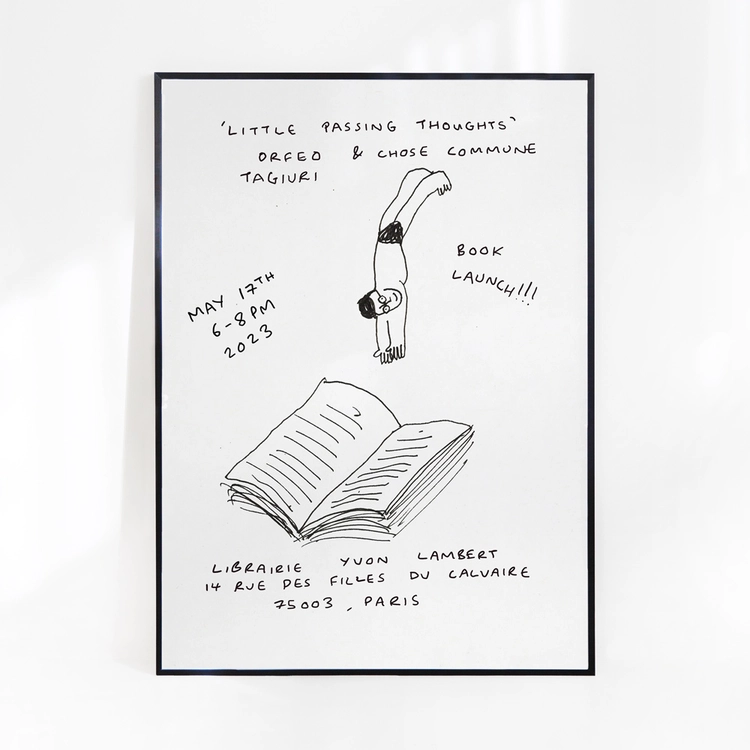 'LITTLE PASSING THOUGHTS'
ORFEO & CHOSE COMMUNE
TAGIURI
BOOK
LAUNCH!!!
MAY 17TH
6-8PM
2023
LIBRAIRIE YVON LAMBERT
14 RUE DES FILLES DU CALVAIRE
75003, PARIS